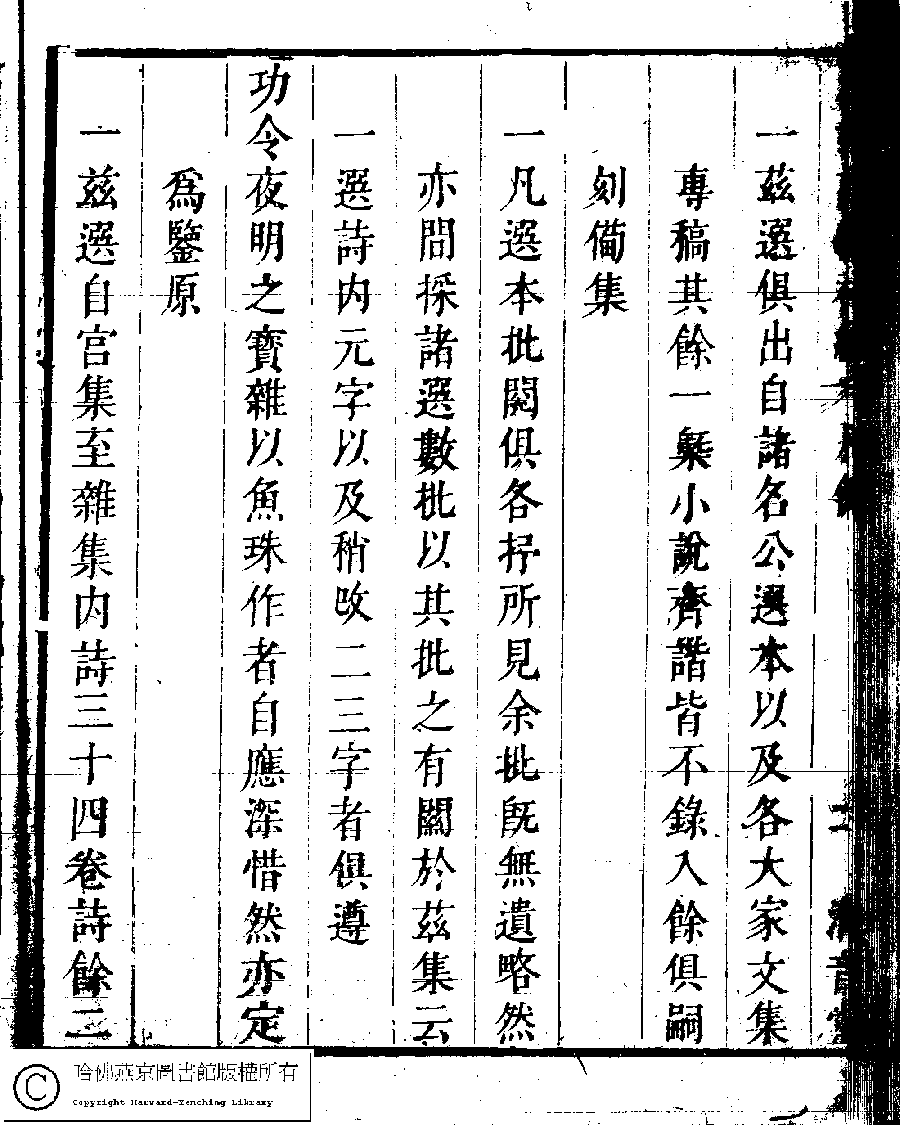 一茲選俱出自諸名公選本以及各大家文集
專稿其餘一槩小說齊諧皆不錄入餘俱嗣
刻備集
一凡選本批閱俱各抒所見余批旣無遺略然
亦間採諸選數批以其批之有關於茲集云
一選詩内元字以及稍改二三字者俱遵
功令夜明之寳雜以魚珠作者自應深惜然亦定
爲鑒原
一茲選自宫集至雜集内詩三十四卷詩餘二
哈佛燕京圖書館版權所有
Copyright Harvard-Yenching Library